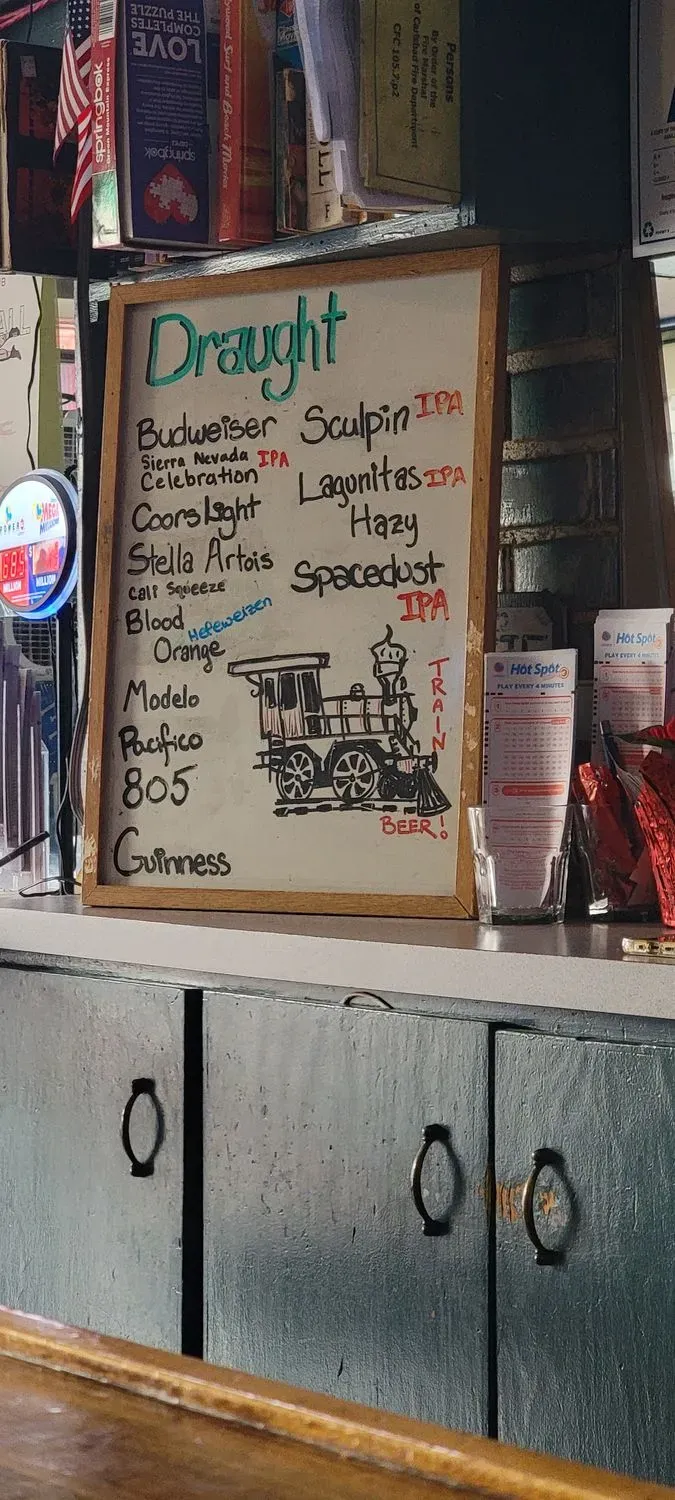 THE PUZZLE
COMPLETES
LOVE
springbok
springbok
Surf and Beach Movies
Persons
By Order of the
Fire Marshal
of Carlsbad Fire Department
CFC 105.7.p2
Draught
Budweiser
Sierra Nevada IPA
Celebration
Coors Light
Stella Artois
Cali Squeeze
Blood
Orange
Hefeweizen
Modelo
Pacifico
805
Guinness
Sculpin IPA
Lagunitas IPA
Hazy
Spacedust
IPA
TRAIN
BEER!
MEGA
MILLION
MILLION
Hot Spot
PLAY EVERY 4 MINUTES
Hot Spot
PLAY EVERY 4 MINUTES